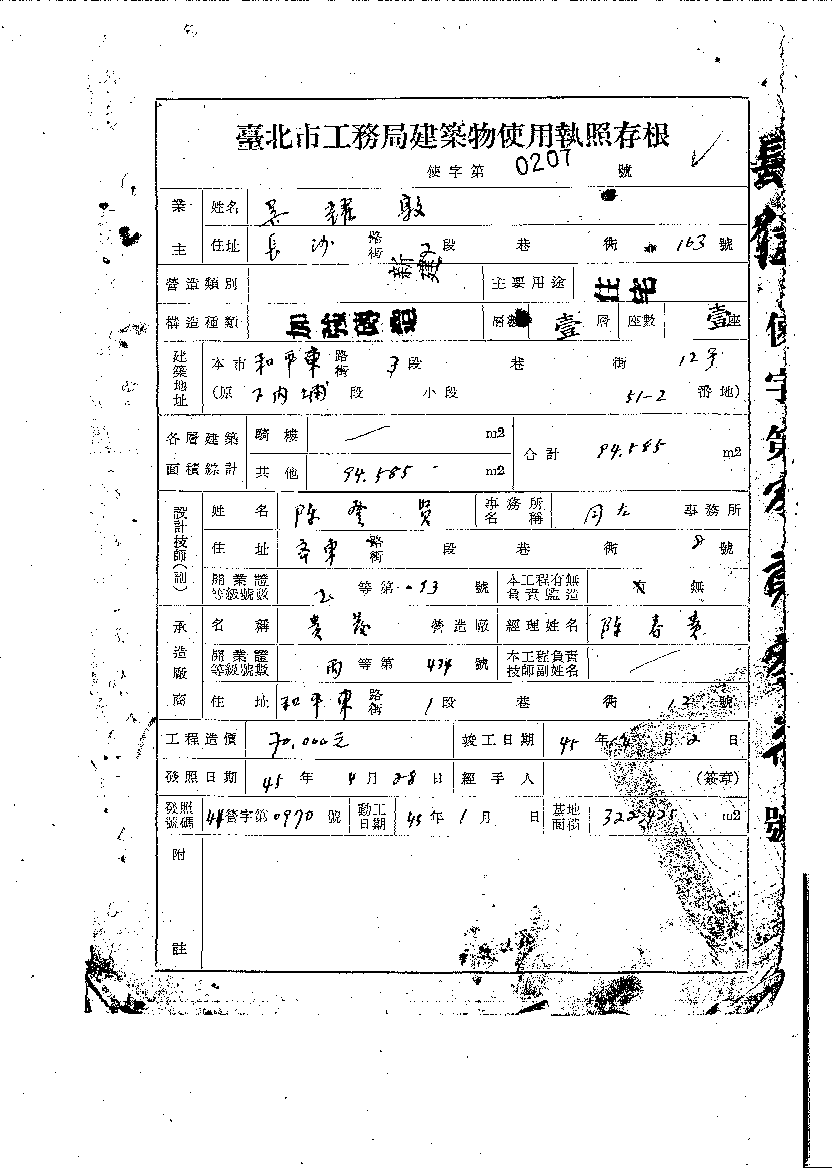 臺北市工務局建築物使用執照存根
使字第 0207 號
業主 姓名 吳耀
住址 長沙 路街 段 巷 衖 163 號
營造類別 新建 主要用途 住宅
構造種類 加強磚造 層數 壹 層 座數 壹 座
建築地址 本市 和平東 路街 3 段 巷 衖 12号
(原 下內埔 段 小段 51-2 番地)
各層建築面積綜計 騎樓 m2
其他 94.585 m2
合計 94.585 m2
設計技師(副) 姓名 陳登 事務所名稱 事務所
住址 齊東 路街 段 巷 衖 8 號
開業證等級號數 等第 13 號 本工程有無負責監造 有 無
承造廠商 名稱 營造廠 經理姓名 陳春
開業證等級號數 丙 等第 434 號 本工程負責技師副姓名
住址 和平東 路街 1 段 巷 衖 號
工程造價 70,000元 竣工日期 45 年 月 2 日
發照日期 45 年 4 月 28 日 經手人 (簽章)
發照號碼 44營字第 0970 號 動工日期 45 年 1 月 日 基地面積 322.425 m2
附註
使字第 號